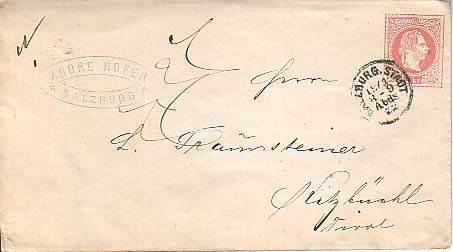 ANDRE HOFER
SALZBURG
SALZBURG STADT
Herrn
L. Traunsteiner
Kitzbüchl
Tirol